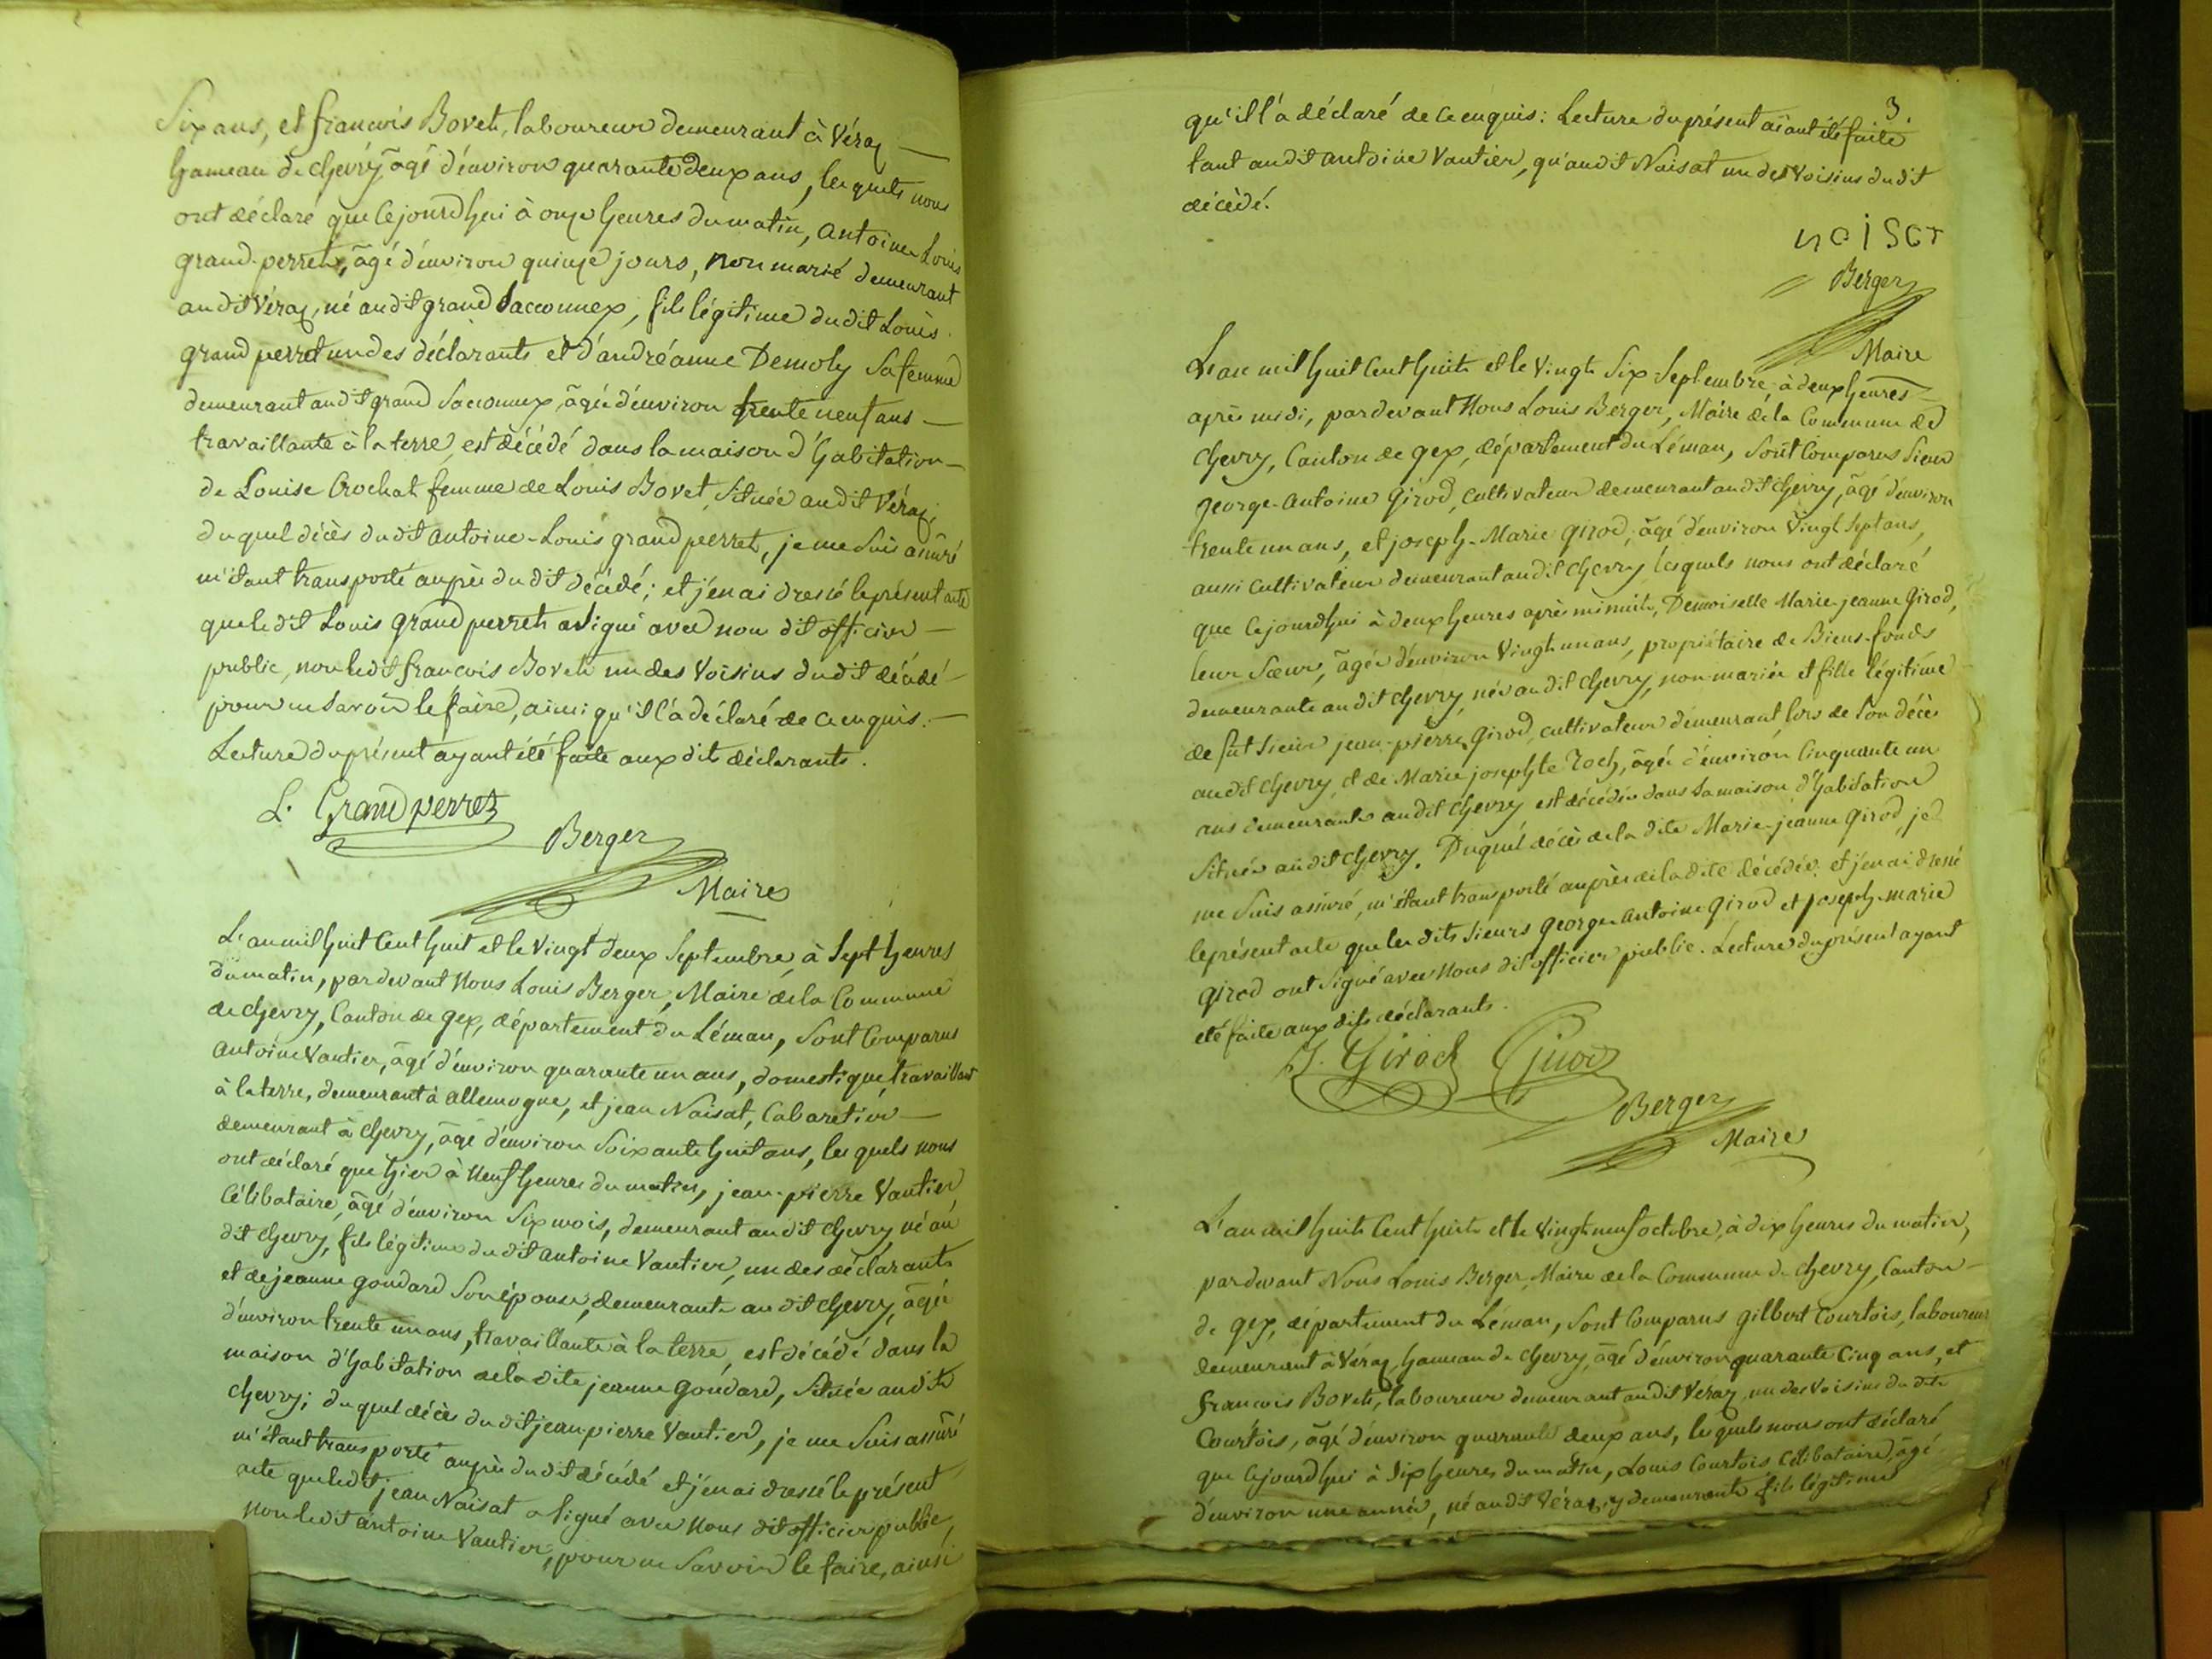 Six ans, et francois Bovet, laboureur demeurant à Véraz —
hameau de chevry, âgé d'environ quarante deux ans, lesquels nous
ont déclaré que cejourd'hui à onze heures du matin, antoine Louis
grand-perret, âgé d'environ quinze jours, non marié demeurant
audit Véraz, né audit grand Sacconnex, fils légitime dudit Louis
grand perret un des déclarants et d'andréanne Demoly sa femme
demeurant audit grand Sacconnex, âgée d'environ trente neuf ans —
travaillante à la terre, est décédé dans la maison d'habitation —
de Louise Crochat femme de Louis Bovet, située audit Véraz,
duquel décès dudit antoine-Louis grand perret, je me suis assuré
m'étant transporté auprès dudit décédé; et j'en ai dressé le présent acte
que ledit Louis grand perret a signé avec nous dit officier —
public, non ledit francois Bovet un des voisins dudit décédé —
pour ne savoir le faire, ainsi qu'il l'a déclaré de ce enquis. —
Lecture du présent ayant été faite aux dits déclarants.
L. Grand perret
Berger
Maire
L'an mil huit cent huit et le vingt deux Septembre, à sept heures
du matin, pardevant Nous Louis Berger, Maire de la Commune
de chevry, Canton de gex, département du Léman, sont comparus
antoine Vautier, âgé d'environ quarante un ans, domestique, travaillant
à la terre, demeurant à allemogne, et jean Naisat, Cabaretier —
demeurant à chevry, âgé d'environ soixante huit ans, lesquels nous
ont déclaré que hier à neuf heures du matin, jean-pierre Vautier,
célibataire, âgé d'environ six mois, demeurant audit chevry, né au
dit chevry, fils légitime dudit antoine Vautier, un des déclarants
et de jeanne goudard son épouse, demeurante audit chevry, âgée
d'environ trente un ans, travaillante à la terre, est décédé dans la
maison d'habitation de la dite jeanne goudard, située audit
chevry; duquel décès dudit jean pierre Vautier, je me suis assuré
m'étant transporté auprès dudit décédé et j'en ai dressé le présent
acte que ledit jean Naisat a signé avec nous dit officier public,
non ledit antoine Vautier, pour ne savoir le faire, ainsi
3.
qu'il l'a déclaré de ce enquis: Lecture du présent aiant été faite
tant audit antoine Vautier, qu'audit Naisat un des voisins dudit
décédé.
naisat
Berger
Maire
L'an mil huit cent huit et le vingt six Septembre, à deux heures —
après midi, pardevant Nous Louis Berger, Maire de la Commune de
chevry, Canton de gex, département du Léman, sont comparus Sieur
george-antoine girod, cultivateur demeurant audit chevry, âgé d'environ
trente un ans, et joseph-Marie girod, âgé d'environ vingt sept ans,
aussi cultivateur demeurant audit chevry lesquels nous ont déclaré
que cejourd'hui à deux heures après minuit, Demoiselle Marie-jeanne girod,
leur sœur, âgée d'environ vingt un ans, propriétaire de Biens-fonds
demeurante audit chevry, née audit chevry, non-mariée et fille légitime
de fut Sieur jean-pierre girod, cultivateur demeurant, lors de son décès
audit chevry, et de Marie josephte Roch, âgée d'environ cinquante un
ans demeurante audit chevry est décédée dans sa maison d'habitation
située audit chevry. Duquel décès de la dite Marie-jeanne girod, je
me suis assuré, m'étant transporté auprès de la dite décédée. et j'en ai dressé
le présent acte que les dits sieurs george-antoine girod et joseph-marie
girod ont signé avec nous dit officier public. Lecture du présent ayant
été faite aux dits déclarants.
J. Girod Girod
Berger
Maire
L'an mil huit cent huit et le vingt neuf octobre, à dix heures du matin,
pardevant Nous Louis Berger, Maire de la Commune de chevry, Canton —
de gex, département du Léman, sont comparus gilbert Courtois, laboureur
demeurant à Véraz, hameau de chevry, âgé d'environ quarante cinq ans, et
francois Bovet, laboureur demeurant audit Véraz un des voisins dudit
Courtois, âgé d'environ quarante deux ans, lesquels nous ont déclaré
que cejourd'hui à six heures du matin, Louis Courtois célibataire, âgé
d'environ une année, né audit Véraz, y demeurant, fils légitime